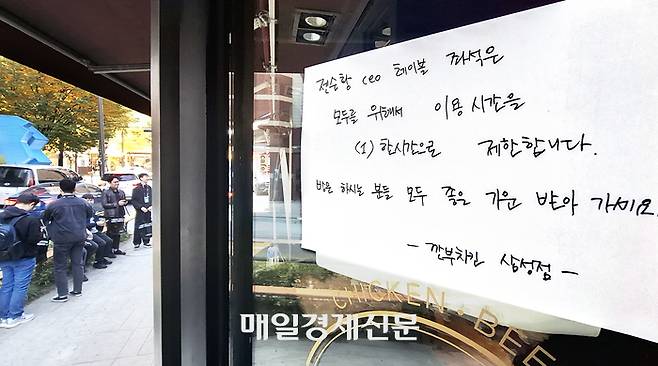 젠슨황 ceo 테이블 좌석은
모두를 위해서 이용시간을
(1) 한시간으로 제한합니다.
방문 하시는 분들 모두 좋은 기운 받아 가세요.
- 깐부치킨 삼성점 -
CHICKEN · BEE
매일경제신문